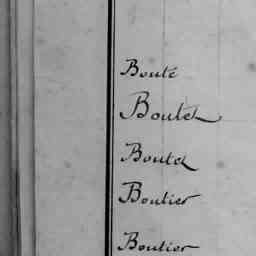 Bouté
Boutet
Boutet
Boutier
Boutier